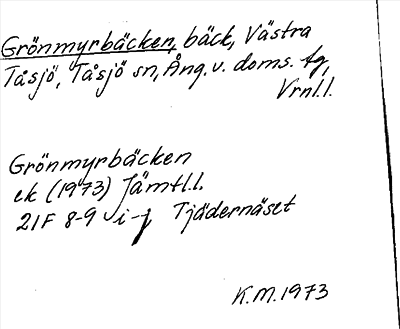 Grönmyrbäcken, bäck, Västra
Tåsjö, Tåsjö sn, Ång. v. doms. tg,
Vrnl.l.
Grönmyrbäcken
ek (1973) Jämtl.l.
21F 8-9 i-j Tjädernäset
K.M. 1973